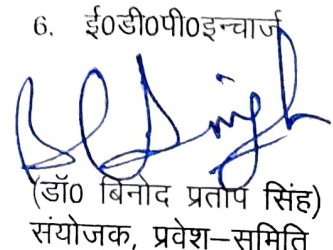 6. ई0डी0पी0इन्चार्ज
(डॉ0 बिनोद प्रताप सिंह)
संयोजक, प्रवेश–समिति